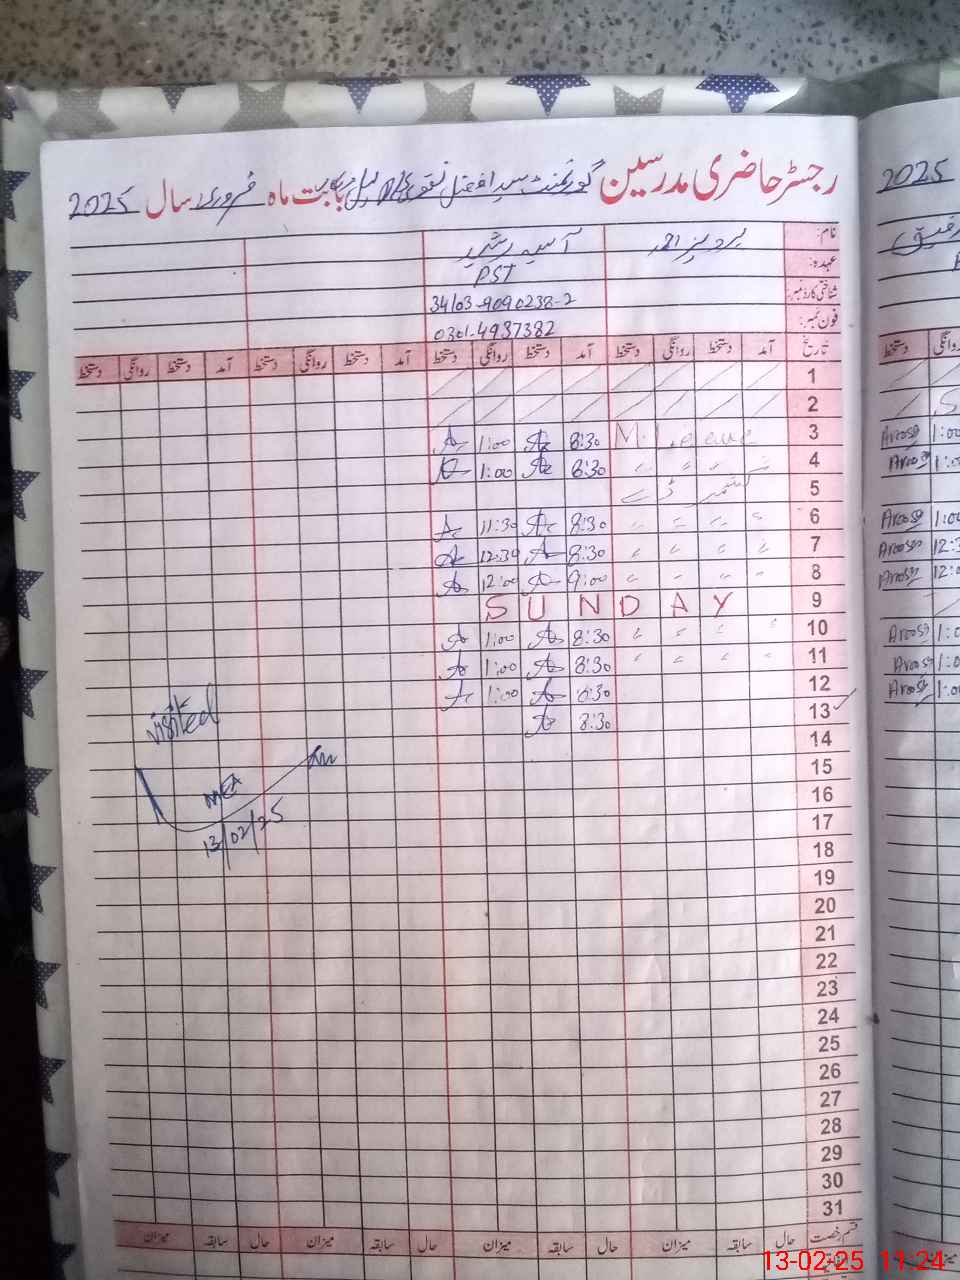 رجسٹر حاضری مدرسین گورنمنٹ سید افضل نقوی بابت ماہ فروری سال 2025
نام: پرویز احمد آسیہ رشید
عہدہ: PST
شناختی کارڈ نمبر: 34103-9090238-2
فون نمبر: 0301-4937382
تاریخ آمد دستخط روانگی دستخط آمد دستخط روانگی دستخط آمد دستخط روانگی دستخط آمد دستخط روانگی دستخط
1
2
3 M. Leave 8:30 1:00
4 〃 〃 〃 〃 8:30 1:00
5 کشمیر ڈے
6 〃 〃 〃 〃 8:30 11:30
7 〃 〃 〃 〃 8:30 12:30
8 〃 〃 〃 〃 9:00 12:00
9 SUNDAY
10 〃 〃 〃 〃 8:30 1:00
11 〃 〃 〃 〃 8:30 1:00
12 8:30 1:00
13 ✓ 8:30
14
15
16
17
18
19
20
21
22
23
24
25
26
27
28
29
30
31
visited
MEA
13/02/25
قسم رخصت حال سابقہ میزان حال سابقہ میزان حال سابقہ میزان حال سابقہ میزان
2025
دستخط روانگی
Aroosa 1:00
Aroosa
Aroosa 1:00
Aroosa
Aroosa
Aroosa
Aroosa
Aroosa
13-02-25 11:24